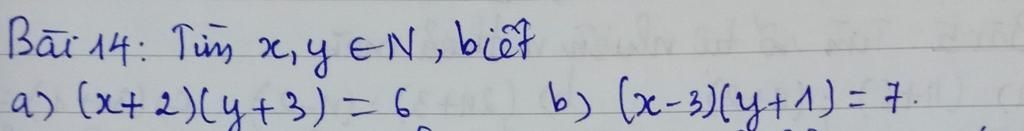 Bài 14: Tìm x, y ∈ N, biết
a) (x+2)(y+3) = 6 b) (x-3)(y+1) = 7.